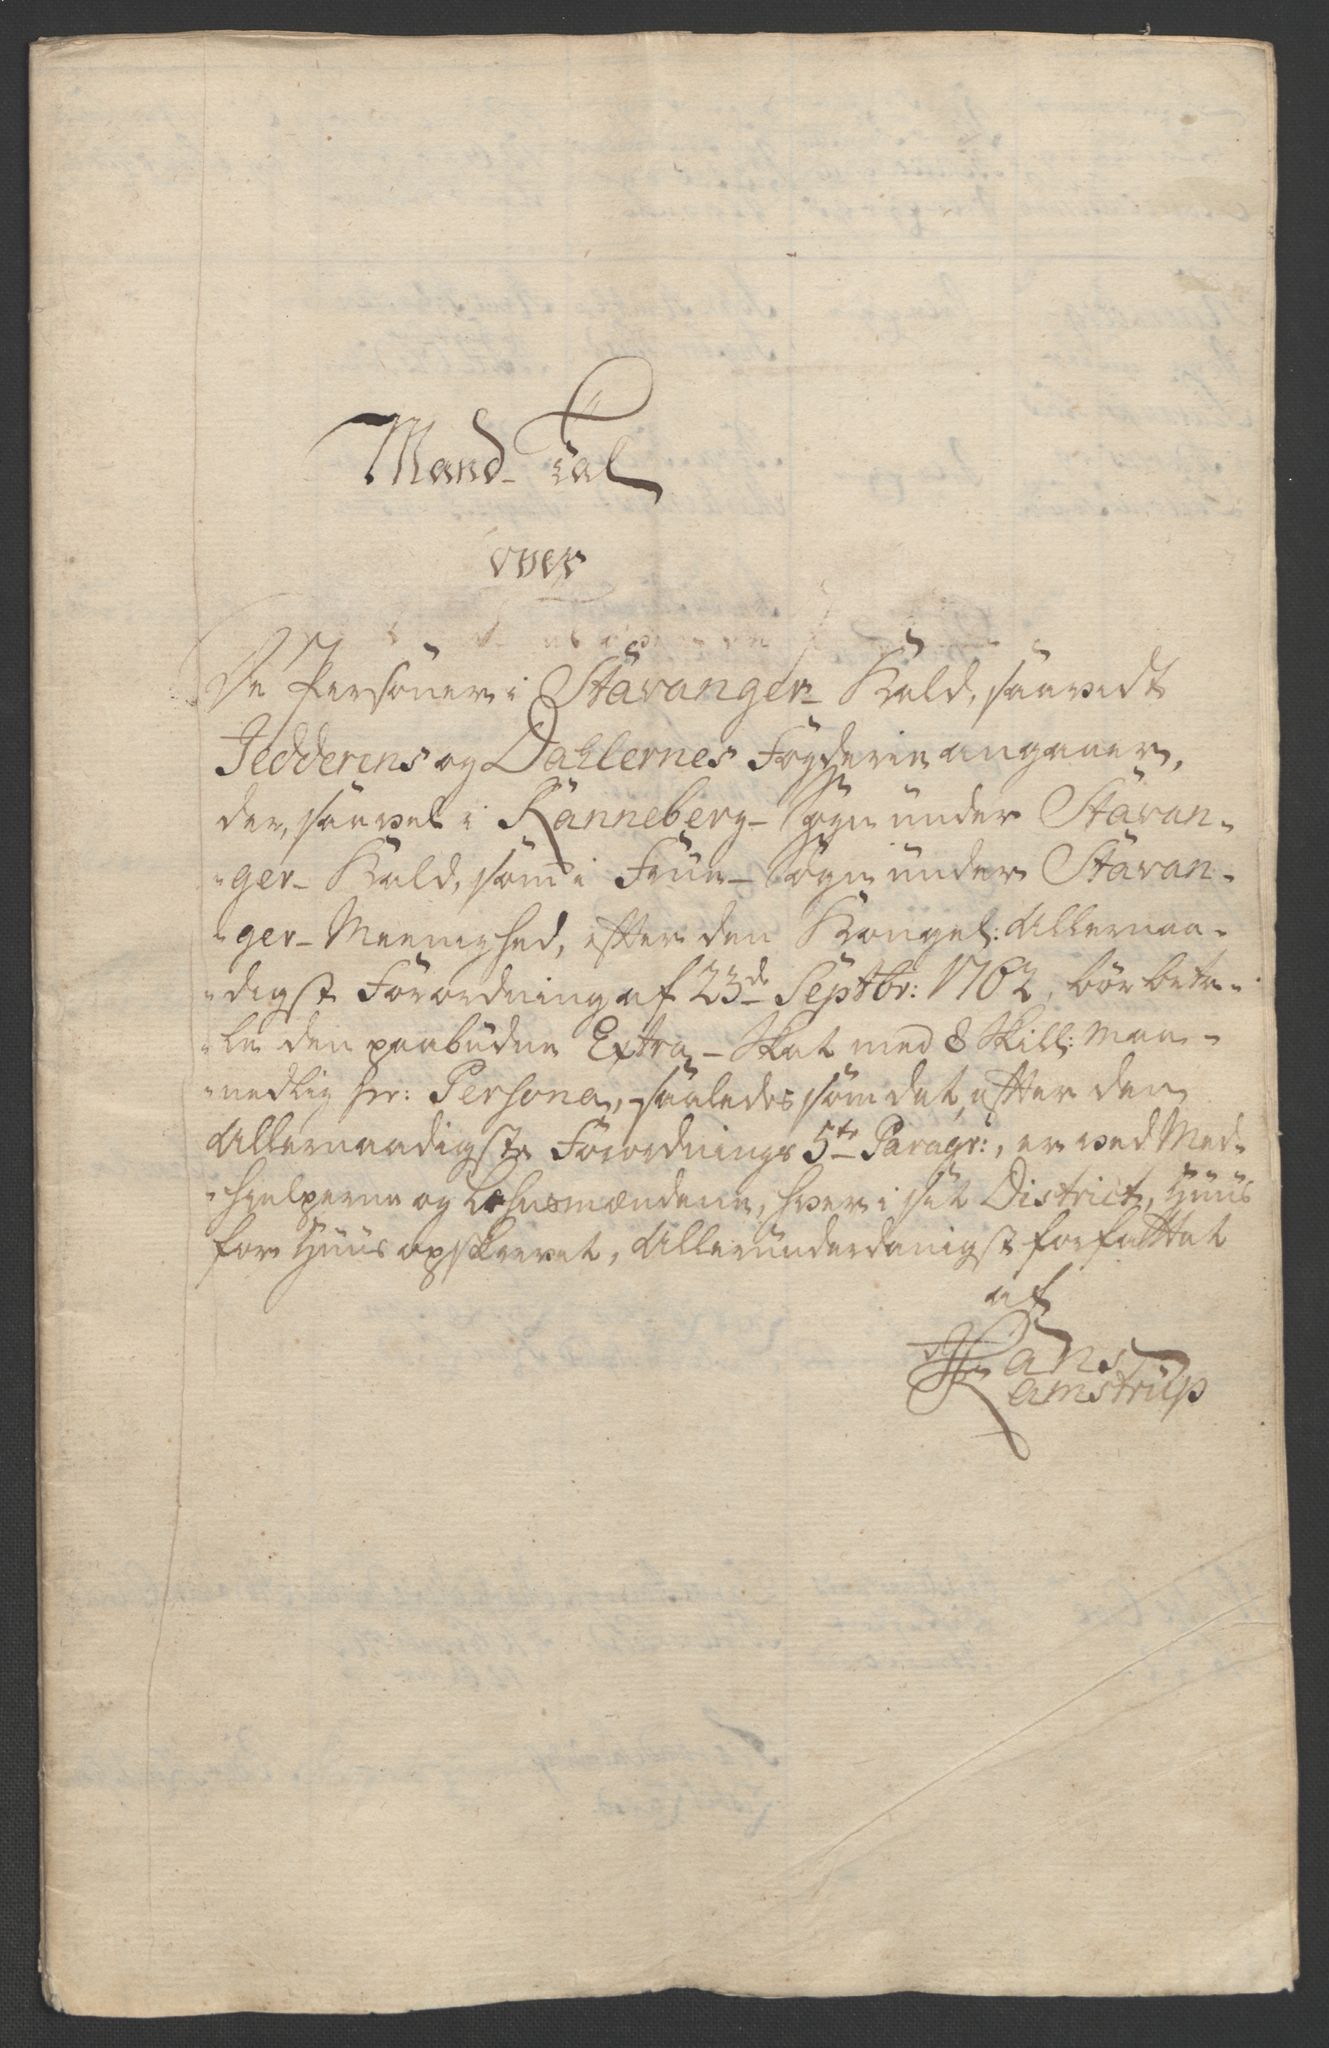 Mand-Tal
over
De Persöner i Stavanger-Kald, saavidt
Jedderens og Dahlernes Fogderie angaaer,
der, saavel i Ranneberg-Sogn under Stavan-
-ger-Kald, som i Frue-Sogn under Stavan-
-ger-Meenighed, efter den Kongel: Allernaa-
-digst Forordning af 23de Septbr: 1762, bör beta-
-le den paabudne Extra-Skat med 8 Skill: Maa-
-nedlig pr: Persona, saaledes som det, efter den
Allernaadigste Forordnings 5te Paragr:, er ved Med-
-hielperne og Lehnsmændene, hver i sit District, Huus
for Huus opskrevet, Allerunderdanigst forfattet
af
Hans
Ramstrup